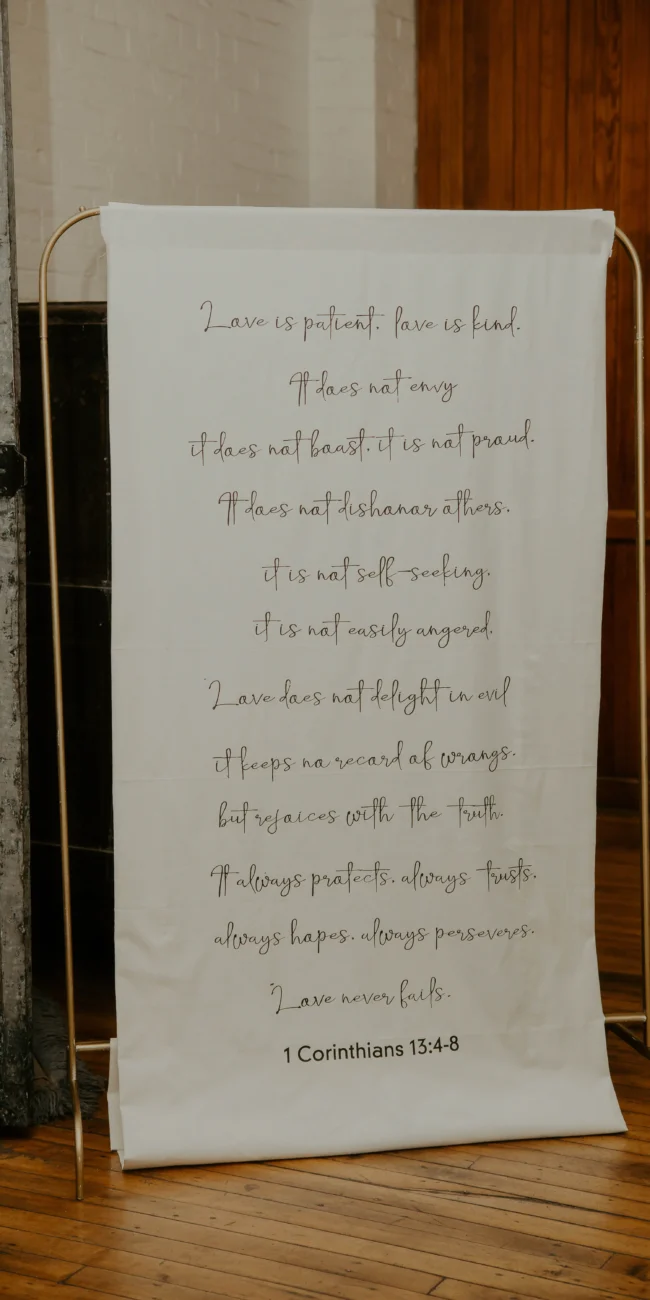 Love is patient. love is kind.
It does not envy
it does not boast. it is not proud.
It does not dishonor others.
it is not self-seeking.
it is not easily angered.
Love does not delight in evil
it keeps no record of wrongs.
but rejoices with the truth.
It always protects. always trusts.
always hopes. always perseveres.
Love never fails.
1 Corinthians 13:4-8